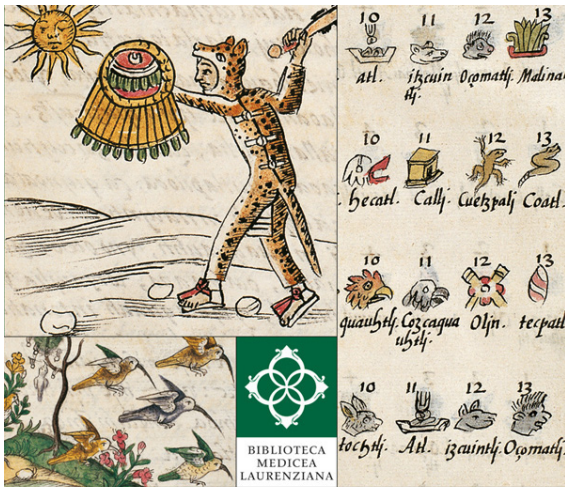 10 11 12 13
atl. itzcuin Oçomatlj Malina
tlj.
10 11 12 13
hecatl. Callj Cuetzpalj Coatl.
10 11 12 13
quauhtlj. Cozcaqua Oljn. tecpatl
uhtlj.
10 11 12 13
tochtlj. Atl. izcuintlj. Oçomatlj.
BIBLIOTECA
MEDICEA
LAURENZIANA